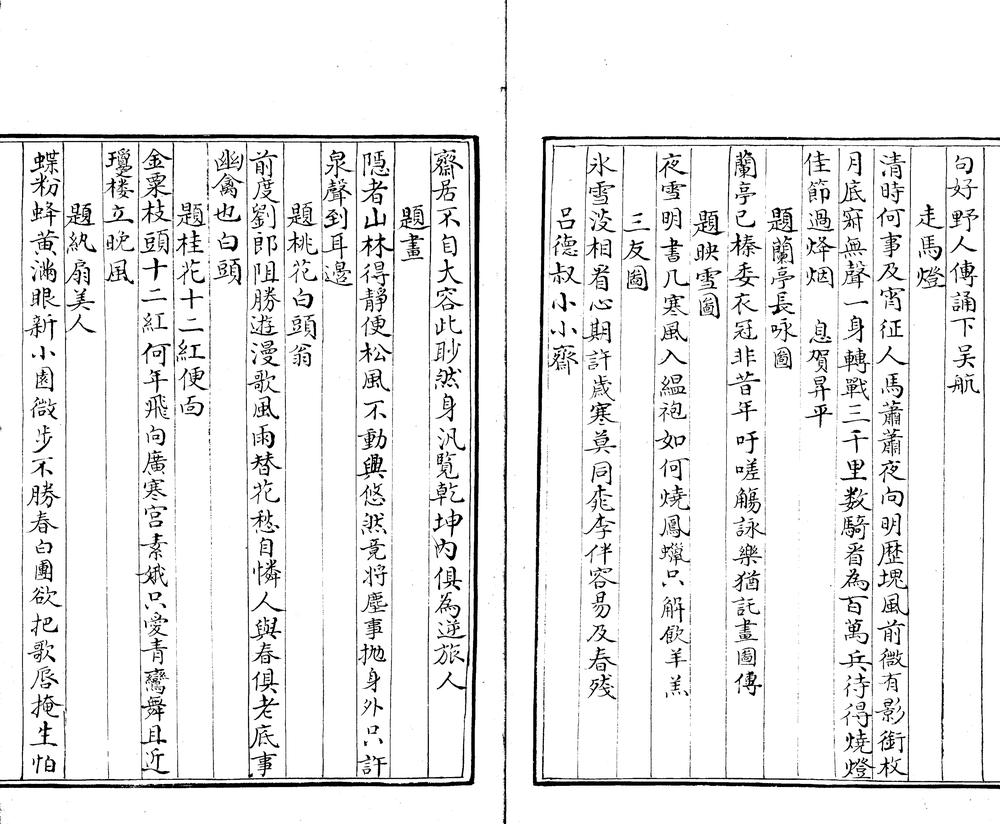 句好野人傳誦下吴航
走馬燈
清時何事及宵征人馬蕭蕭夜向明歴塊風前微有影銜枚
月底寂無聲一身轉戰三千里数騎看為百萬兵待得燒燈
佳節過烽烟 息賀昇平
題蘭亭長咏圖
蘭亭已榛委衣冠非昔年吁嗟觴詠樂猶託畫圖傳
題映雪圖
夜雪明書几寒風入緼袍如何燒鳳蠟只解飲羊羔
三友圖
氷雪淡相看心期許歲寒莫同桃李伴容易及春殘
吕德叔小小齋
齋居不自大容此眇然身汎覧乾坤内俱為逆旅人
題畫
隱者山林得靜便松風不動興悠然竟将塵事抛身外只許
泉聲到耳邊
題桃花白頭翁
前度劉郎阻勝遊漫歌風雨替花愁自憐人與春俱老底事
幽禽也白頭
題桂花十二紅便面
金粟枝頭十二紅何年飛向廣寒宫素娥只愛青鸞舞且近
瓊楼立晚風
題紈扇美人
蝶粉蜂黄滿眼新小園微步不勝春白團欲把歌唇掩生怕